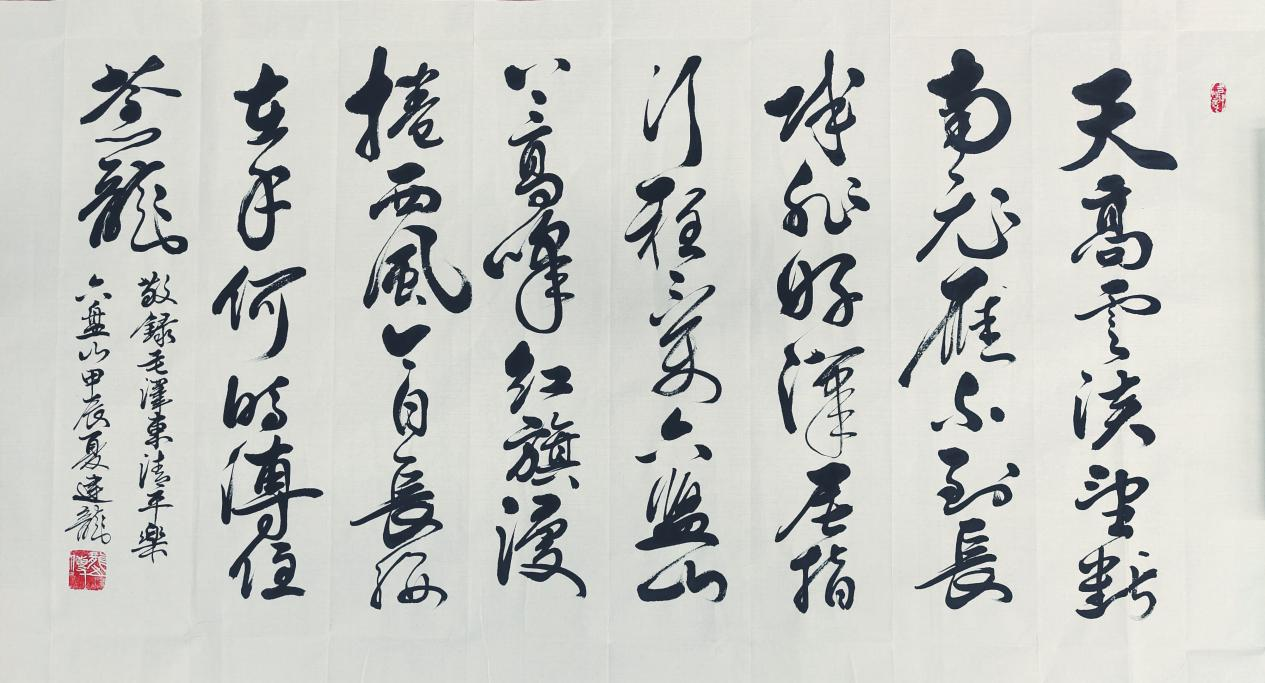 天高雲淡望斷
南飛雁不到長
城非好漢屈指
行程二萬六盤山
上高峰红旗漫
捲西風今日長纓
在手何時縛住
蒼龍
敬錄毛澤東清平樂
六盤山甲辰夏建龍